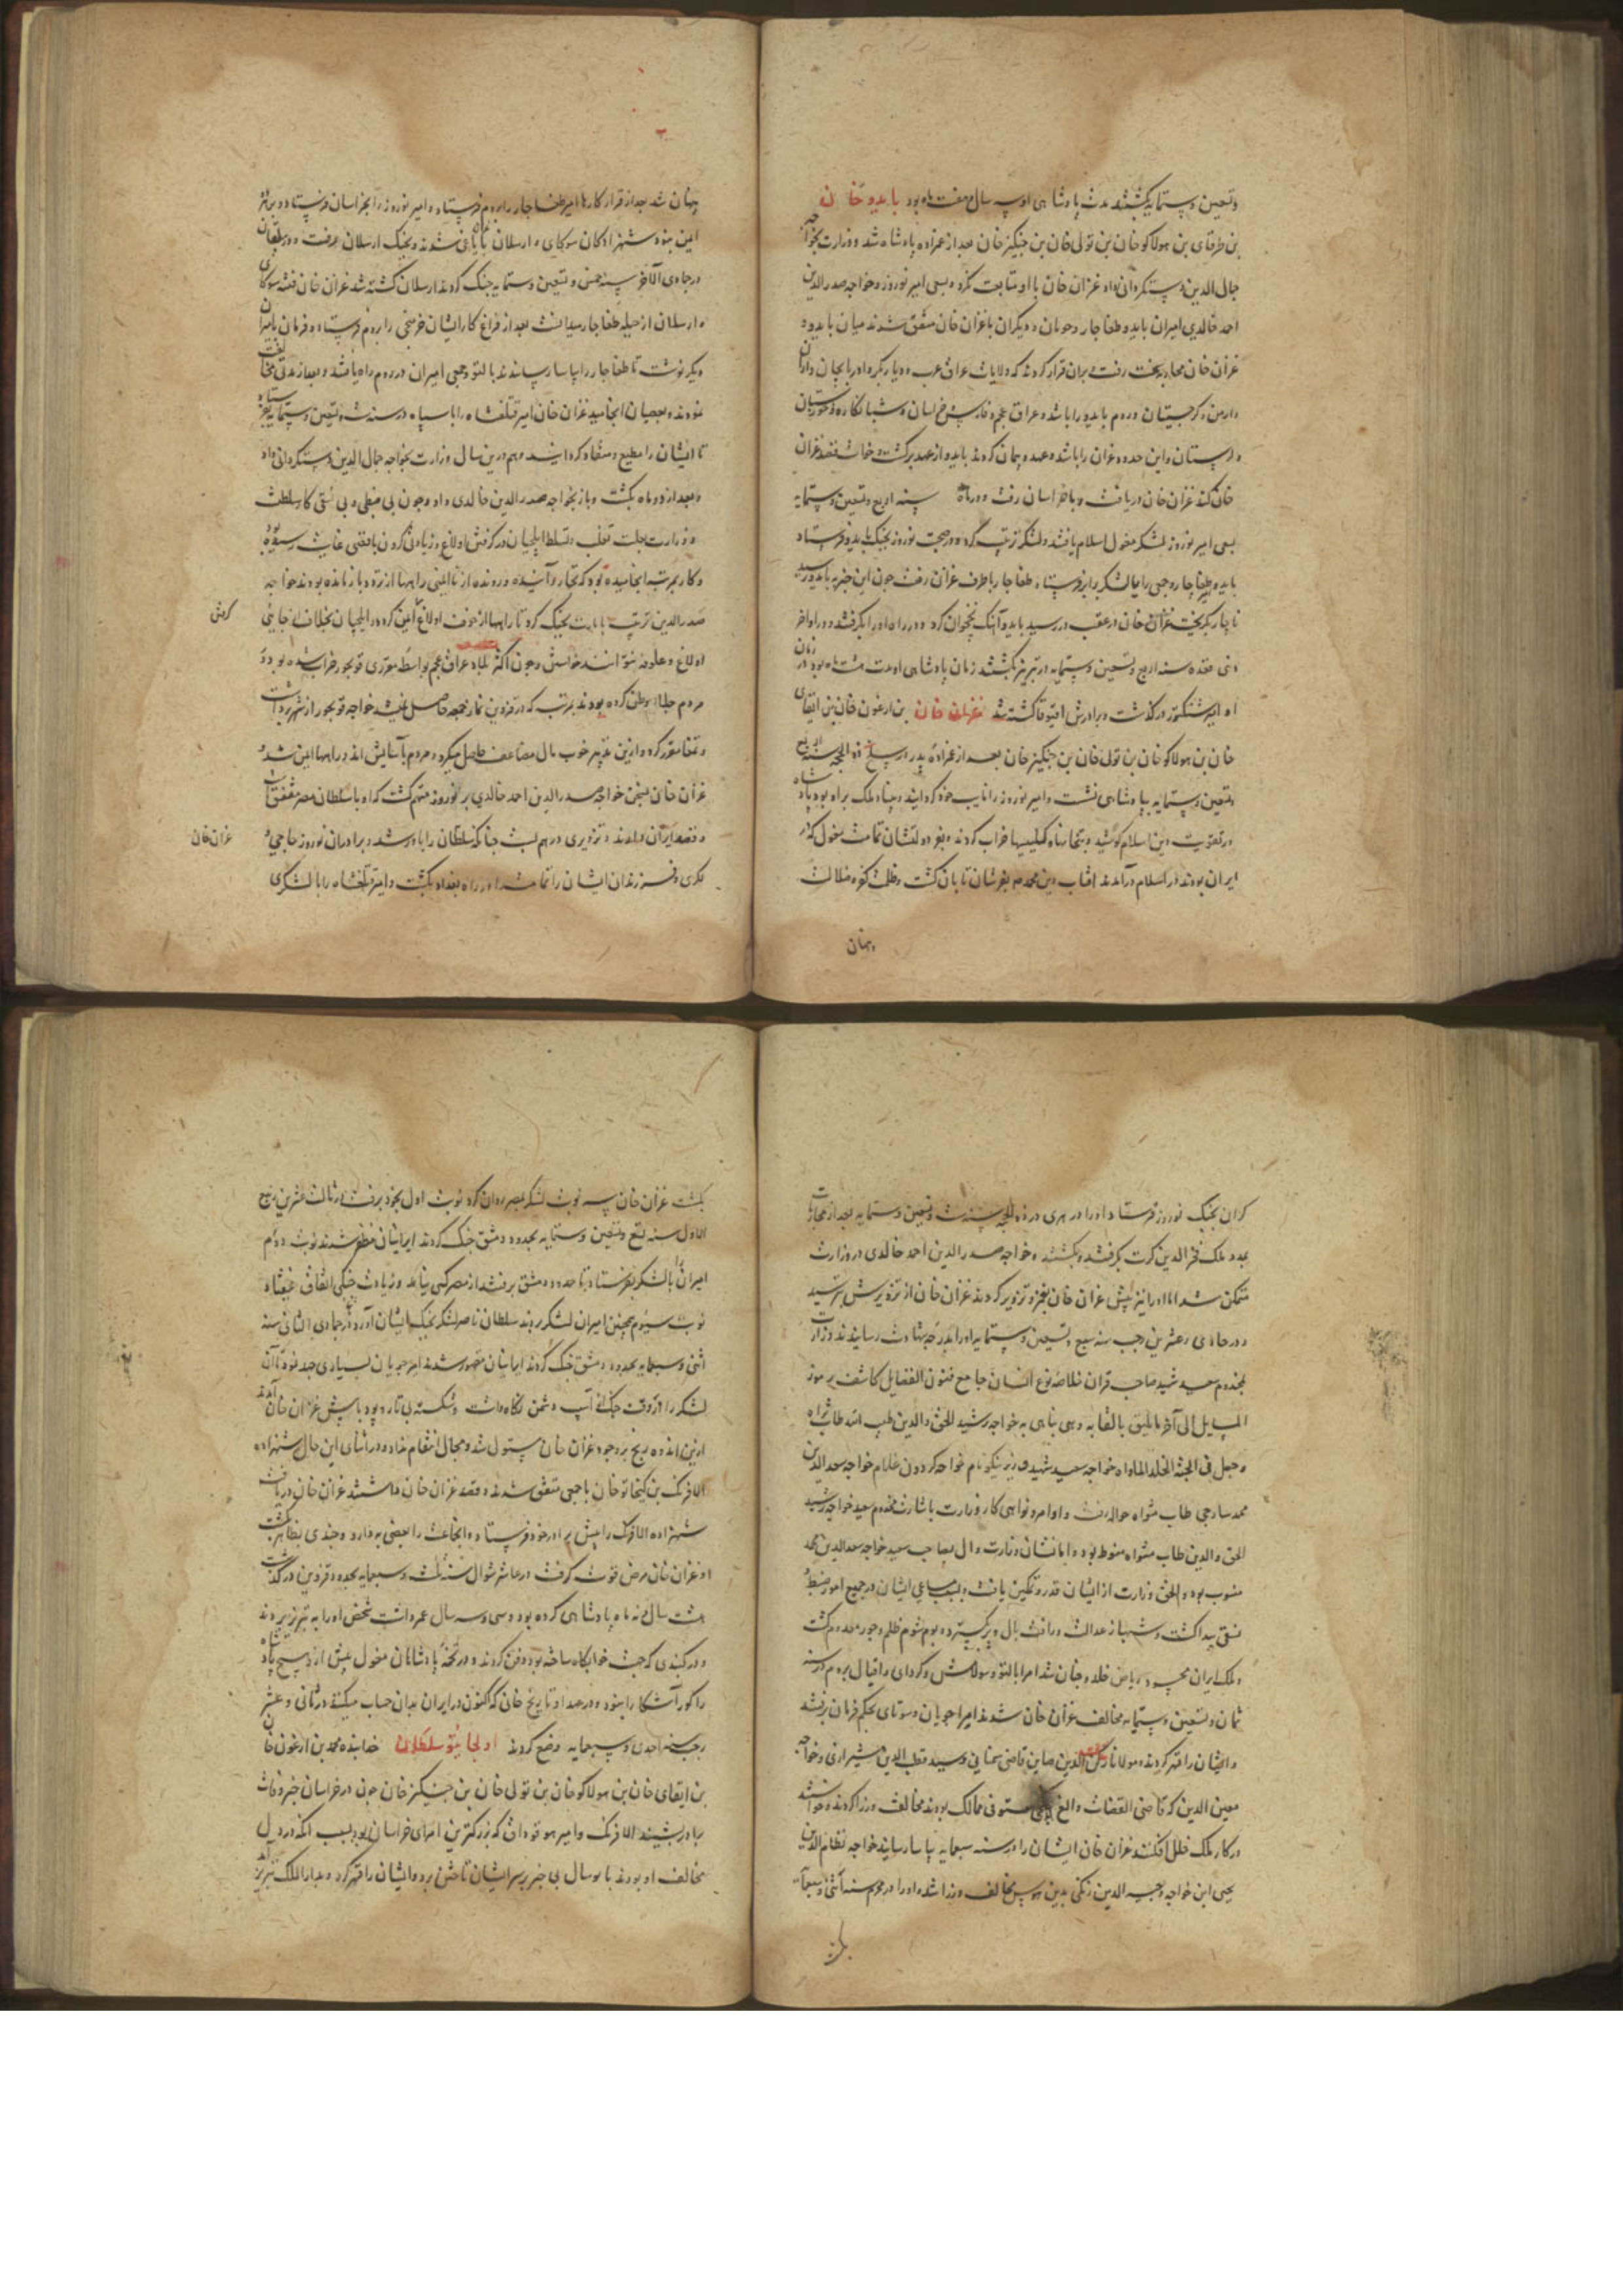 وتسعین وستمایه بکشتند مدت پادشاهی او سه سال و هفت ماه بود بایدو خان
بن طرقای بن هولاکو خان بن تولی خان بن جنکیز خان بعد از عمزاده پادشاه شد و وزارت بخواجه
جمال الدین دستکردانی داد غزان خان با او متابعت نکرد و بسعی امیر نوروز و خواجه صدر الدین
احمد خالدی امیران بایدو طغاجار و جوبان و دیکران با غزان خان متفق شدند میان بایدو و
غزان خان محاربه بخت رفت و بران قرار کردند که ولایات عراق عرب و دیار بکر و اذربایجان و اران
و ارمن و کرجستان و روم بایدو را باشد و عراق عجم و فارس و خراسان و شبانکاره و خوزستان
و لرستان و این حدود غزان را باشد و عهد و پیمان کردند بایدو از عهد برکشت و خواست قصد غزان
خان کند غزان خان دریافت و با خراسان رفت و در ماه سنه اربع وتسعین وستمایه
بسعی امیر نوروز لشکر مغول اسلام یافتند و لشکر ترتیب کرد و در صحبت نوروز بجنک بایدو فرستاد
بایدو طغاجار و جمعی را با لشکر برابر فرستاد طغاجار با طرف غزان رفت چون این خبر به بایدو رسید
ناچار بکریخت غزان خان در عقب در رسید بایدو آهنک نخجوان کرد و در راه او را بکرفتند و در اواخر
ذی قعده سنه اربع وتسعین وستمایه در تبریز بکشتند زمان پادشاهی او مدت هشت ماه بود در زمان
او امیر شنکتور در کذشت و برادرش اقبوقا کشته شد غزان خان بن ارغون خان بن ابقای
خان بن هولاکو خان بن تولی خان بن جنکیز خان بعد از عمزاده پدر در سلخ ذو الحجه سنه اربع
وتسعین وستمایه بپادشاهی نشست و امیر نوروز را نایب خود کردانید و پناه ملک براه بود پادشاه
در تقویت دین اسلام کوشید و بتخانها و کلیسیها خراب کردند و بفر دولتشان تمامت مغول که در
ایران بودند در اسلام درآمدند افتاب دین محمدی بفرشان تابان کشت و ظلمت کفر و ضلالت
پنهان
پنهان شد بعد از قرار کارها امیر طغاجار را بروم فرستاد و امیر نوروز را بخراسان فرستاد و بر
ایمن بنود شهزادکان سوکای و ارسلان با یاغی شدند و بجنک ارسلان برفت و در بیلقان
در جمادی الآخر سنه خمس وتسعین وستمایه جنک کردند ارسلان کشته شد غزان خان فتنه سوکای
و ارسلان از حیله طغاجار میدانست بعد از فراغ کار ایشان خرمنجی را بروم فرستاد و فرمان بامیران
دیکر نوشت تا طغاجار را بیاسا رسانیدند بالتو و جمعی امیران در روم راه یافتند و بعد از مدتی مخالفت
نمودند و بعصیان انجامید غزان خان امیر قتلغشاه را با سپاه در سنه ست وتسعین وستمایه بفرستاد
تا ایشان را مطیع و منقاد کردانید و هم درین سال وزارت بخواجه جمال الدین دستکردانی داد
و بعد از دو ماه بکشت و باز بخواجه صدر الدین خالدی داد و چون بی ضبطی و بی نسقی کار سلطنت
و وزارت بجهت تغلب و تسلط ایلچیان در کرفتن اولاغ و زیادتی کردن باقصی غایت رسیده بود
و کار بمرتبه انجامیده بود که تجار و آینده و رونده از ناایمنی راهها از تردد باز مانده بودند خواجه
صدر الدین ترتیب یامات بجنک کرد تا راهها از خوف اولاغ ایمن کردد و ایلچیان بخلاف از جایی
کرفتن
اولاغ و علوفه نتوانند خواستن و چون اکثر بلاد عراق عجم بواسطه مقرری قوبجور خراب شده بود و
مردم جلا وطن کرده بودند بمرتبه که در قزوین نماز جمعه حاصل نمیشد خواجه قوبجور از شهر برداشت
و تمغا مقرر کرد و ازین تدبیر خوب مال مضاعف حاصل میکرد و مردم بآسایش اند و راهها ایمن شد و
غزان خان بسخن خواجه صدر الدین احمد خالدی بر نوروز متهم کشت که او با سلطان مصر متفق است
و قصد ایران دارند و تزویری در هم بست چنانکه سلطان را باور شد و برادران نوروز حاجی و
غزان خان
لکزی و فرزندان ایشان را تمامت در راه بغداد بکشت و امیر قتلغشاه را با لشکری
کران بجنک نوروز فرستاد او را در هری در ذو الحجه سنه ست وتسعین وستمایه بعد از محاربات
بمدد ملک فخر الدین کرت بکرفتند و بکشتند و خواجه صدر الدین احمد خالدی در وزارت
متمکن شد اما او را نیز پیش غزان خان بغمز و تزویر کردند غزان خان از تزویرش بترسید
و در حادی وعشرین رجب سنه سبع وتسعین وستمایه او را بدرجه شهادت رسانیدند وزارت
بمخدوم سعید شهید صاحب قران خلاصه نوع انسان جامع فنون الفضایل کاشف رموز
المسایل الی آخر ما یلیق بالقابه وهی بناهی به خواجه رشید الحق والدین طیب الله ثراه
وجعل فی الجنة الخلد الماواه خواجه سعید شهید وزیر نیکو نام خواجه کردون غلام خواجه سعد الدین
محمد ساوجی طاب مثواه حواله رفت و اوامر و نواهی کار وزارت باشارت مخدوم سعید خواجه رشید
الحق والدین طاب مثواه منوط بود و اما نشان وزارت و ال بصاحب سعید خواجه سعد الدین محمد
منسوب بود و الحق وزارت از ایشان قدر و تمکین یافت و بسبب مساعی ایشان در جمیع امور ضبط و
نسق پیدا کشت و شهباز عدالت و رافت بال و پر بکسترد و بوم شوم ظلم و جور معدوم کشت
و ملک ایران همچو ریاض خلد و جنان شد امرا بالتو و سولامش و کردای و اقبال بروم در سنه
ثمان وتسعین وستمایه مخالف غزان خان شدند امیرا جوبان و سوتای بحکم فرمان برفتند
و ایشان را قهر کردند و مولانا رکن الدین صاین قاضی سمنانی و سید قطب الدین شیرازی و خواجه
معین الدین که قاضی القضات و الغ مستوفی ممالک بودند مخالفت وزرا کردند و خواستند
در کار ملک خلل افکنند غزان خان ایشان را در سنه سبعمایه بیاسا رسانید خواجه نظام الدین
یحیی ابن خواجه وجیه الدین زنکی بدین هوس مخالف وزرا شد و او را در محرم سنه اثنی وسبعمایه
بکشت
بکشت غزان خان سه نوبت لشکر بمصر روان کرد نوبت اول بخود برفت در ثالث عشرین ربیع
الاول سنه تسع وتسعین وستمایه بحدود دمشق جنک کردند ایرانیان مظفر شدند نوبت دوم
امیران را با لشکر بفرستاد تا حدود دمشق برفتند از مصر کسی نیامد و زیادت جنکی اتفاق نیفتاد
نوبت سیوم همچنین امیران لشکر بردند سلطان ناصر لشکر بجنک ایشان آورد و در جمادی الثانی سنه
اثنی وسبعمایه بحدود دمشق جنک کردند ایرانیان مقهور شدند امیر جوبان بسیاری جهد نمود تا آن
لشکر را از وقت جنک از آسیب دشمن نکاه داشت و شکسته بی تار و پود با پیش غزان خان آمدند
ازین اندوه رنج بر وجود غزان خان مستولی شد و مجال انتقام نداد و در اثنای این حال شهزاده
الافرنک بن کیخاتو خان با جمعی متفق شدند و قصد غزان خان داشتند غزان خان دریافت
شهزاده الافرنک را پیش برادر خود فرستاد و انجماعت را بعضی بردار و چندی بظاهر بکشت
و غزان خان مرض قوت کرفت در عاشر شوال سنه ثلث وسبعمایه بحدود قزوین درکذشت
هشت سال و نه ماه پادشاهی کرده بود و سی و سه سال عمر داشت شخص او را به تبریز بردند
و در کنبدی که جهت خوابکاه ساخته بود دفن کردند و در تخمه پادشاهان مغول پیش ازو هیچ پادشاه
را کور آشکارا نبود و در عهد او تاریخ خان که اکنون در ایران بدان حساب میکنند در ثانی وعشر
رجب سنه احدی وسبعمایه وضع کردند اولجایتو سلطان خدابنده محمد بن ارغون خان
بن ابقای خان بن هولاکو خان بن تولی خان بن جنکیز خان چون در خراسان خبر وفات
برادر بشنید الافرنک و امیر هورقوداق که بزرکترین امرای خراسان بود بسبب انکه در دل
مخالف او بودند با یوسال بی خبر بر سر ایشان تاختن برد و ایشان را قهر کرد و بدار الملک تبریز آمد